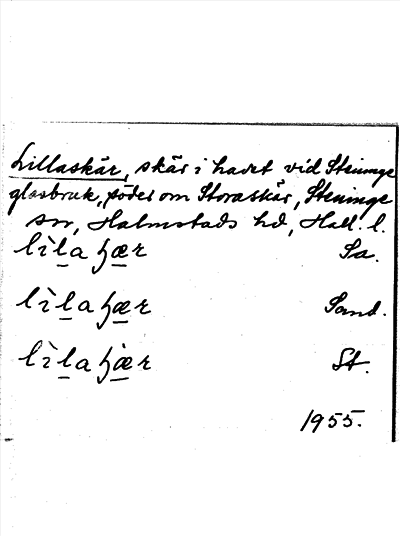 Lillaskär, skär i havet vid Steninge
glasbruk, söder om Storaskär, Steninge
sn, Halmstads hd, Hall. l.
lìla ʃær Sa.
lìla ʃær Sand.
lìla ʃæ̀r St.
1955.